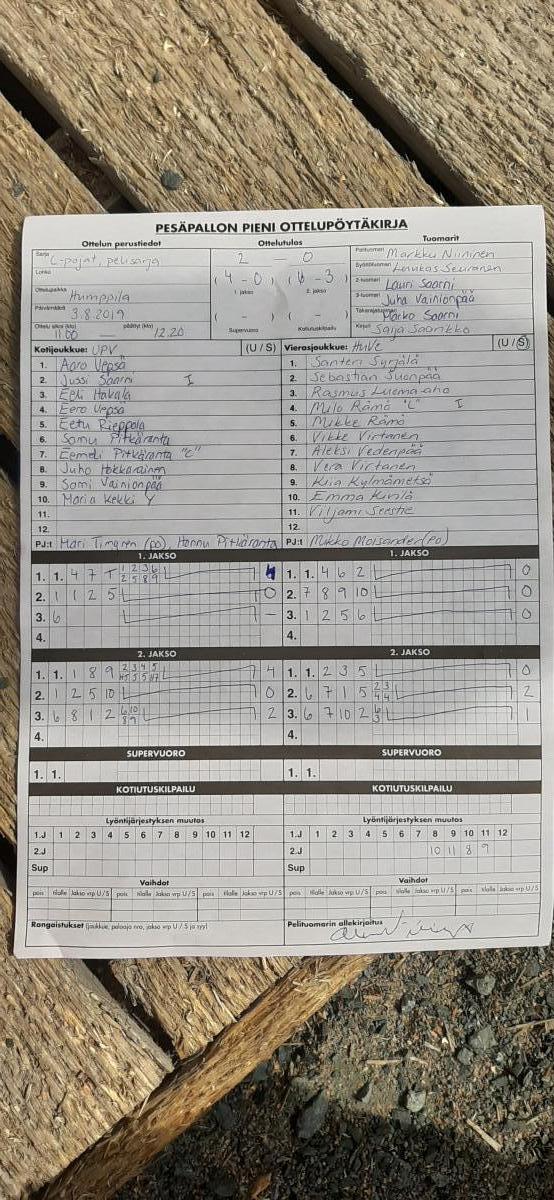 PESÄPALLON PIENI OTTELUPÖYTÄKIRJA
Ottelun perustiedot Ottelutulos Tuomarit
Sarja C-pojat, pelisarja 2 - 0 Pelituomari Markku Niininen
Lohko (4 - 0) (6 - 3) Syöttötuomari Seuranen
1. jakso 2. jakso 2-tuomari Lauri Saarni
Ottelupaikka Humppila 3-tuomari Juha Vainionpää
Päivämäärä 3.8.2019 ( - ) ( - ) Takarajatuomari Marko Saarni
Ottelu alkoi (klo) 11.00 — päättyi (klo) 12.20 Supervuoro Kotiutuskilpailu Kirjuri Saija Saarikko
Kotijoukkue: UPV (U / S) Vierasjoukkue: HuVe (U / S)
1. Aaro Uepsä 1. Santeri Syrjälä
2. Jussi Saarni I 2. Sebastian Suonpää
3. Eeli Hakala 3. Rasmus Luoma-aho
4. Eero Uepsä 4. Milo Rämö "C" I
5. Eetu Rieppola 5. Mikke Rämö
6. Samu Pitkäranta 6. Vikke Virtanen
7. Eemeli Pitkäranta "C" 7. Aleksi Vedenpää
8. Juho Hokkarainen 8. Vera Virtanen
9. Sami Vainionpää 9. Kiia Kylmämetsä
10. Maria Kekki Y 10. Emma
11. 11. Viljami Seestie
12. 12.
PJ:t Mari Timgren (po), Hannu Pitkäranta PJ:t Mikko Moisander (po)
1. JAKSO 1. JAKSO
1. 1. 4 7 T 1 2 3 6 4 1. 1. 4 6 2 0
2 5 8 9
2. 1 1 2 5 0 2. 7 8 9 10 0
3. 6 - 3. 1 2 5 6 0
4. 4.
2. JAKSO 2. JAKSO
1. 1. 1 8 9 2 3 4 5 4 1. 1. 2 3 5 0
2. 1 2 5 10 0 2. 6 7 1 5 2 3 2
4 4
3. 6 8 1 2 6 10 2 3. 6 7 10 2 6 1
8 9 3
4. 4.
SUPERVUORO SUPERVUORO
1. 1. 1. 1.
KOTIUTUSKILPAILU KOTIUTUSKILPAILU
Lyöntijärjestyksen muutos Lyöntijärjestyksen muutos
1.J 1 2 3 4 5 6 7 8 9 10 11 12 1.J 1 2 3 4 5 6 7 8 9 10 11 12
2.J 2.J 10 11 8 9
Sup Sup
Vaihdot Vaihdot
pois tilalle Jakso vrp U / S pois tilalle Jakso vrp U / S pois tilalle Jakso vrp U / S pois tilalle Jakso vrp U / S pois tilalle Jakso vrp U / S pois tilalle Jakso vrp U / S
Rangaistukset (joukkue, pelaaja nro, jakso vrp U / S ja syy) Pelituomarin allekirjoitus